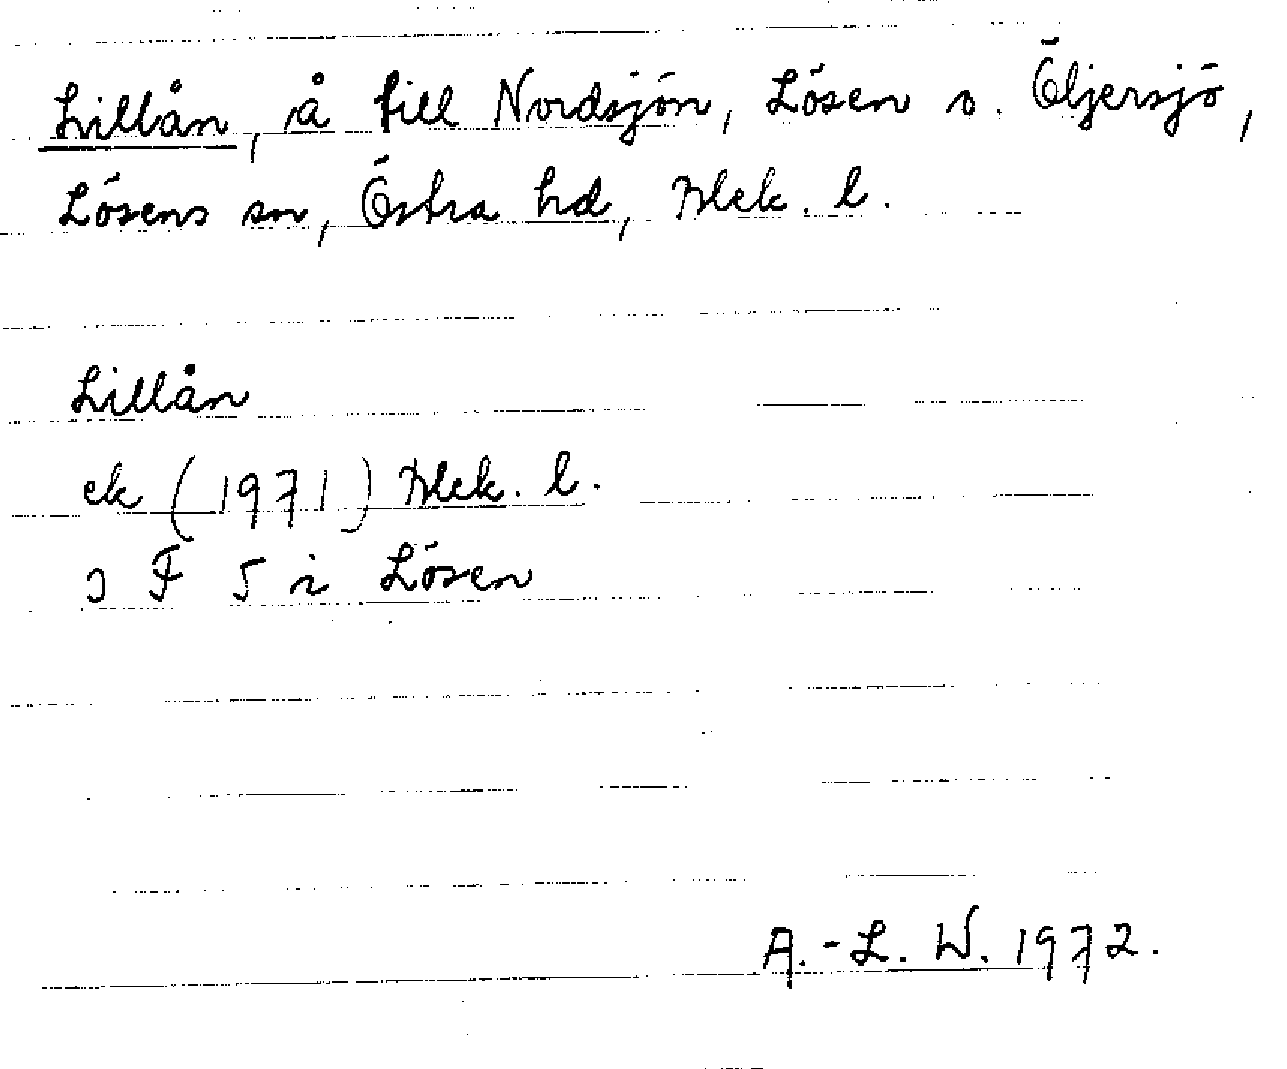 Lillån, å till Nordsjön, Lösen o. Öljersjö,
Lösens sn, Östra hd, Blek. l.
Lillån
ek (1971) Blek. l.
3 F 5 i Lösen
A.-L. W. 1972.